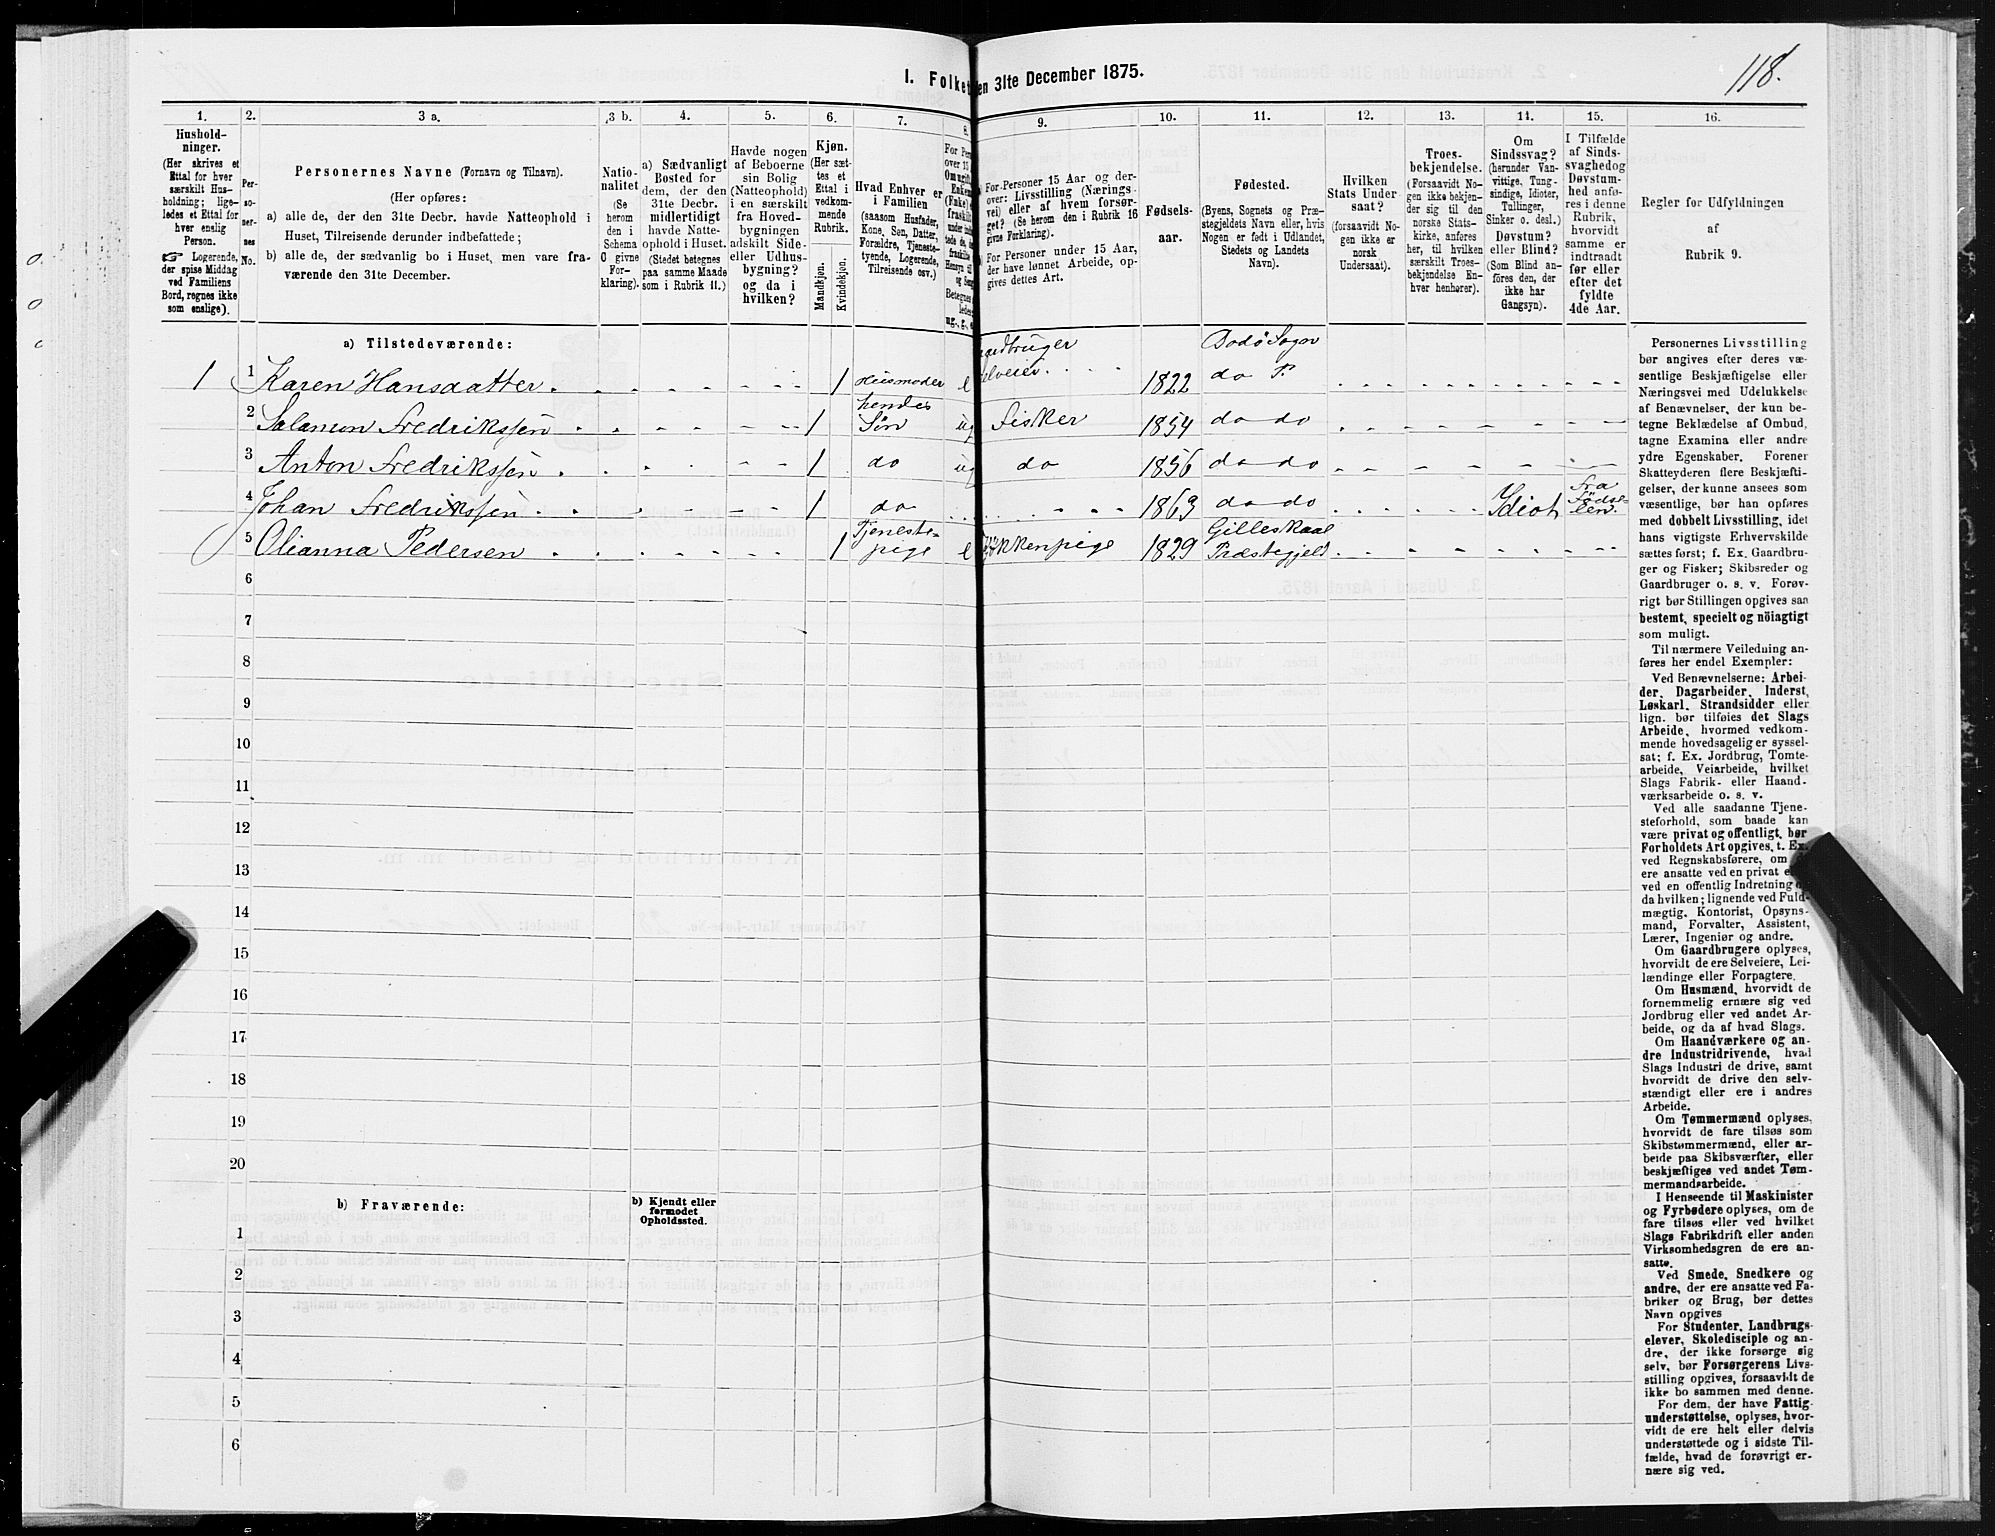 118.
I. Folket
en 31te December 1875.
1. 2. 3 a. 3 b. 4. 5. 6. 7. 8. 9. 10. 11. 12. 13. 14. 15. 16.
Hushold-
ninger.
(Her skrives et
Ettal for hver
særskilt Hus-
holdning; lige-
ledes et Ettal for
hver enslig
Person.
☞ Logerende,
der spise Middag
ved Familiens
Bord, regnes ikke
som enslige).
Per-
so-
ner-
nes
No.
Personernes Navne (Fornavn og Tilnavn).
(Her opføres:
a) alle de, der den 31te Decbr. havde Natteophold i
Huset, Tilreisende derunder indbefattede;
b) alle de, der sædvanlig bo i Huset, men vare fra-
værende den 31te December.
Natio-
nalitet
(Se
herom
den i
Schema
C givne
For-
klaring).
a) Sædvanligt
Bosted for
dem, der den
31te Decbr.
midlertidigt
havde Natte-
ophold i Huset.
(Stedet betegnes
paa samme Maade
som i Rubrik 11.)
Havde nogen
af Beboerne
sin Bolig
(Natteophold)
i en særskilt
fra Hoved-
bygningen
adskilt Side-
eller Udhus-
bygning?
og da i
hvilken?
Kjøn.
(Her sæt-
tes et
Ettal i
vedkom-
mende
Rubrik.
Mandkjøn.
Kvindekjøn.
Hvad Enhver er
i Familien
(saasom Husfader,
Kone, Søn, Datter,
Forældre, Tjeneste-
tyende, Logerende,
Tilreisende osv.)
For Personer 15 Aar og der-
over: Livsstilling (Nærings-
vei) eller af hvem forsør-
get? (Se herom den i Rubrik 16
givne Forklaring).
For Personer under 15 Aar,
der have lønnet Arbeide, op-
gives dettes Art.
Fødsels-
aar.
Fødested.
(Byens, Sognets og Præ-
stegjeldets Navn eller, hvis
Nogen er født i Udlandet,
Stedets og Landets
Navn).
Hvilken
Stats Under
saat?
(forsaavidt No-
gen ikke er
norsk
Undersaat).
Troes-
bekjendelse.
(Forsaavidt No-
gen ikke bekjen-
der sig til den
norske Stats-
kirke, anføres
her, til hvilken
særskilt Troes-
bekjendelse En-
hver henhører).
Om
Sindssvag?
(herunder Van-
vittige, Tung-
sindige, Idioter,
Tullinger,
Sinker o. desl.)
Døvstum?
eller Blind?
(Som Blind an-
føres den, der
ikke har
Gangsyn).
I Tilfælde
af Sinds-
svaghed og
Døvstum-
hed anfø-
res i denne
Rubrik,
hvorvidt
samme er
indtraadt
før eller
efter det
fyldte
4de Aar.
Regler for Udfyldningen
af
Rubrik 9.
a) Tilstedeværende:
1 1 Karen Hansdatter 1 Husmoder e aardbruger elveier 1822 Bodö Sogn do P.
2 Salamon Fredrikssen 1 hendes Sön ug Fisker 1854 do do
3 Anton Fredrikssen 1 do ug do 1856 do do
4 Johan Fredrikssen 1 do 1863 do do Idiot fra Födse- len.
5 Olianna Pedersen 1 Tjeneste- pige e Kökkenpige 1829 Gilleskaal Præstegjeld
6
7
8
9
10
11
12
13
14
15
16
17
18
19
20
b) Fraværende:
b) Kjendt eller
formodet
Opholdssted.
1
2
3
4
5
6
Personernes Livsstilling
bør angives efter deres væ-
sentlige Beskjæftigelse eller
Næringsvei med Udelukkelse
af Benævnelser, der kun be-
tegne Beklædelse af Ombud,
tagne Examina eller andre
ydre Egenskaber. Forener
Skatteyderen flere Beskjæfti-
gelser, der kunne ansees som
væsentlige, bør han opføres
med dobbelt Livsstilling, idet
hans vigtigste Erhvervskilde
sættes først; f. Ex. Gaardbru-
ger og Fisker; Skibsreder og
Gaardbruger o. s. v. Forøv-
rigt bør Stillingen opgives saa
bestemt, specielt og nöiagtigt
som muligt.
Til nærmere Veiledning an-
føres her endel Exempler:
Ved Benævnelserne: Arbei-
der, Dagarbeider, Inderst,
Løskarl, Strandsidder eller
lign. bør tilføies det Slags
Arbeide, hvormed vedkom-
mende hovedsagelig er syssel-
sat; f. Ex. Jordbrug, Tomte-
arbeide, Veiarbeide, hvilket
Slags Fabrik- eller Haand-
værksarbeide o. s. v.
Ved alle saadanne Tjene-
steforhold, som baade kan
være privat og offentligt, bør
Forholdets Art opgives, t. Ex.
ved Regnskabsførere, om
ere ansatte ved en privat
ved en offentlig Indretning
da hvilken; lignende ved Fuld-
mægtig, Kontorist, Opsyns-
mand, Forvalter, Assistent,
Lærer, Ingeniør og andre.
Om Gaardbrugere oplyses,
hvorvidt de ere Selveiere, Lei-
lændinge eller Forpagtere.
Om Husmænd, hvorvidt de
fornemmelig ernære sig ved
Jordbrug eller ved andet Ar-
beide, og da af hvad Slags.
Om Haandværkere og an-
dre Industridrivende, hvad
Slags Industri de drive, samt
hvorvidt de drive den selv-
stændigt eller ere i andres
Arbeide.
Om Tømmermænd oplyses,
hvorvidt de fare tilsøs som
Skibstømmermænd, eller ar-
beide paa Skibsværfter, eller
beskjæftiges ved andet Tøm-
mermandsarbeide.
I Henseende til Maskinister
og Fyrbødere oplyses, om de
fare tilsøs eller ved hvilket
Slags Fabrikdrift eller anden
Virksomhedsgren de ere an-
satte.
Ved Smede, Snedkere og
andre, der ere ansatte ved Fa-
briker og Brug, bør dettes
Navn opgives
For Studenter, Landbrugs-
elever, Skoledisciple og an-
dre, der ikke forsørge sig
selv, bør Forsørgerens Livs-
stilling opgives, forsaavidt de
ikke bo sammen med denne.
For dem, der have Fattig-
understøttelse, oplyses, hvor-
vidt de ere helt eller delvis
understøttede og i sidste Til-
fælde, hvad de forøvrigt er-
nære sig ved.